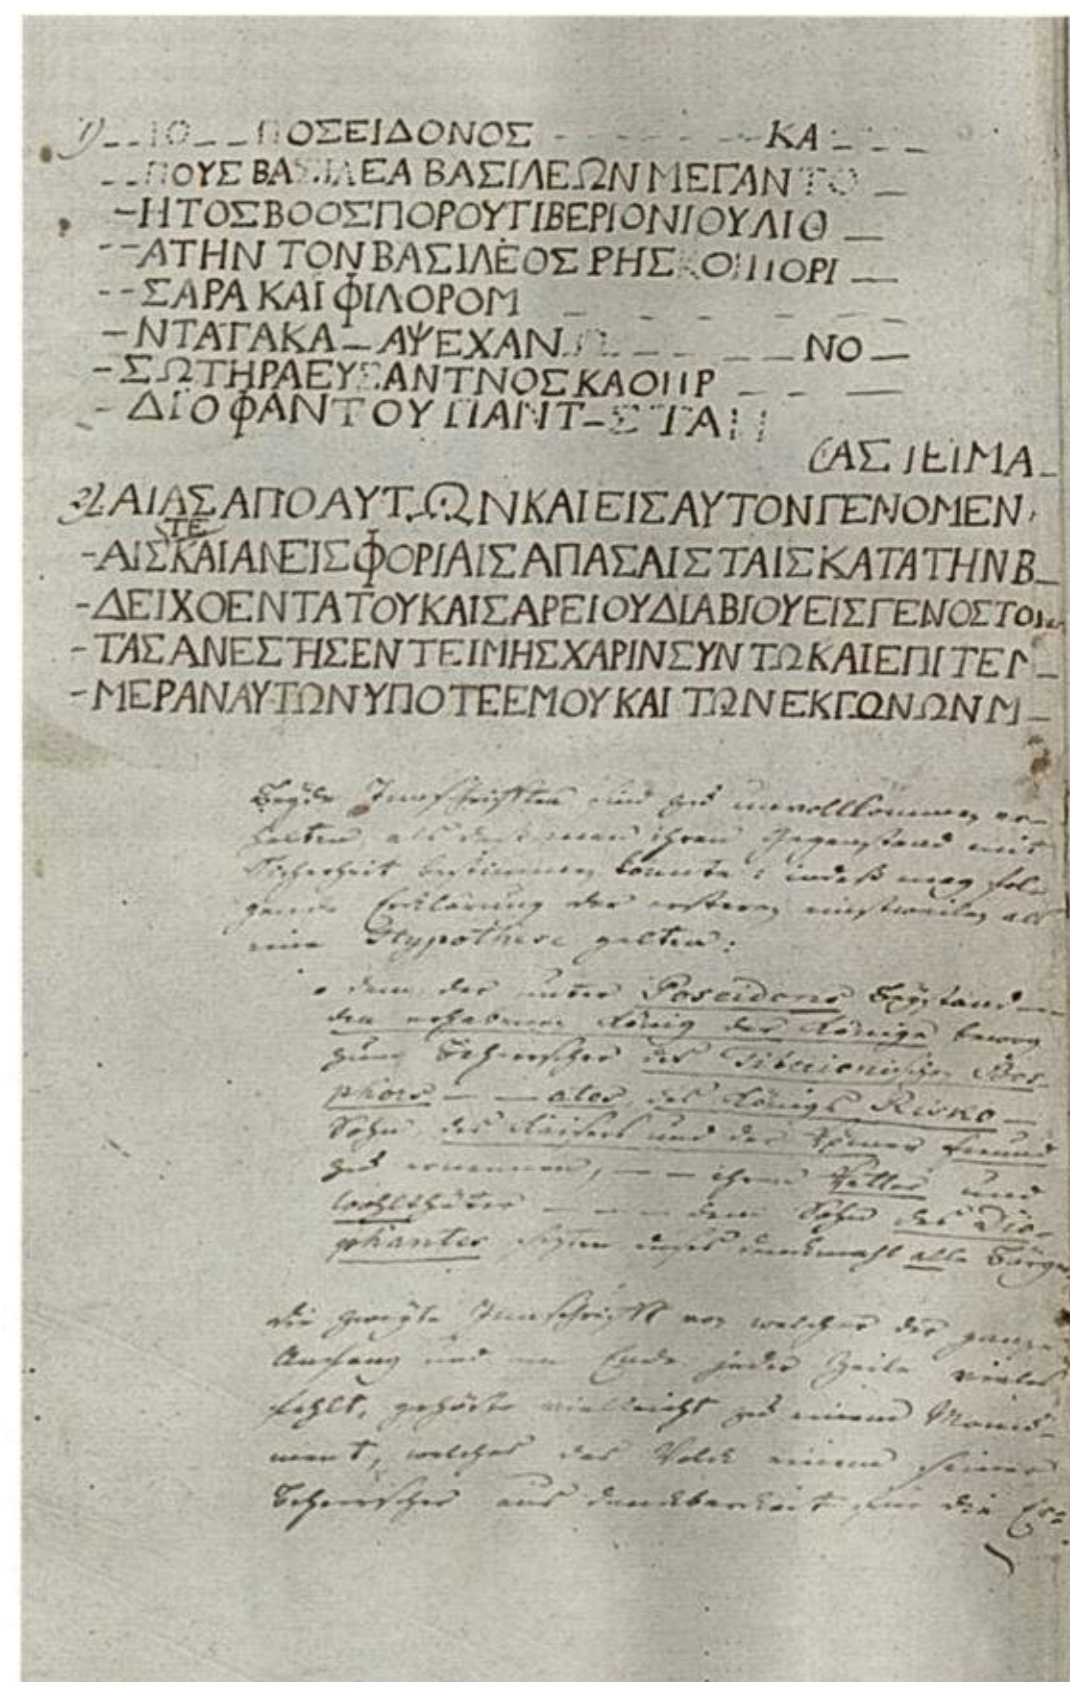 1) -- ΙΟ -- ΠΟΣΕΙΔΟΝΟΣ - - - - - - - ΚΑ - - -
-- ΠΟΥΣ ΒΑΣΙΛΕΑ ΒΑΣΙΛΕΩΝ ΜΕΓΑΝ ΤΟ --
- ΗΤΟΣΒΟΟΣΠΟΡΟΥΤΙΒΕΡΙΟΝΙΟΥΛΙΟ --
-- ΑΤΗΝ ΤΟΝ ΒΑΣΙΛΕΟΣ ΡΗΣΚΟΙΠΟΡΙ --
-- ΣΑΡΑ ΚΑΙ ΦΙΛΟΡΟΜ - - - - -
- ΝΤΑΓΑΚΑ - ΑΨΕΧΑΝ - - - - ΝΟ -
- ΣΩΤΗΡΑΕΥΣΑΝΤΝΟΣΚΑΟΠΡ - - -
- ΔΙΟΦΑΝΤΟΥ ΠΑΝΤ-ΣΤΑ
ΑΣΙΕΙΜΑ -
2) ΑΙΑΣ ΑΠΟ ΑΥΤΩΝ ΚΑΙ ΕΙΣ ΑΥΤΟΝ ΓΕΝΟΜΕΝ
ΤΕ
- ΑΙΣΚΑΙΑΝΕΙΣΦΟΡΙΑΙΣΑΠΑΣΑΙΣΤΑΙΣΚΑΤΑΤΗΝΒ -
- ΔΕΙΧΟΕΝΤΑΤΟΥΚΑΙΣΑΡΕΙΟΥΔΙΑΒΙΟΥΕΙΣΓΕΝΟΣΤΟ
- ΤΑΣΑΝΕΣΤΗΣΕΝΤΕΙΜΗΣΧΑΡΙΝΣΥΝΤΩΚΑΙΕΠΙΤΕΓ -
- ΜΕΡΑΝΑΥΤΩΝΥΠΟΤΕΕΜΟΥΚΑΙ ΤΩΝΕΚΓΩΝΩΝΜ -
Beyde Innschriften sind zu unvollkommen er-
halten, als dass man ihren Gegenstand mit
Sicherheit bestimmen konnte: indeß mag fol-
gende Erklärung der ersteren einstweilen als
eine Hypothese gelten:
dem, der unter Poseidons Beystand
den erhabenen König der Könige bewog
zum Beherrscher des Tiberionischen Bos-
phors - - ates, des Königs Risko -
Sohn, des Kaisers und der Römer Freund
zu ernennen, - - ihrem Retter und
Wohlthäter - - - dem Sohn des Dio-
phantes setzten dieses Denkmahl alle Bürger
Die zweyte Innschrift von welcher der ganze
Anfang und am Ende jeder Zeile vieles
fehlt, gehörte vielleicht zu einem Monu-
ment, welches das Volck einem seiner
Beherrscher aus Danckbarkeit für die Er-